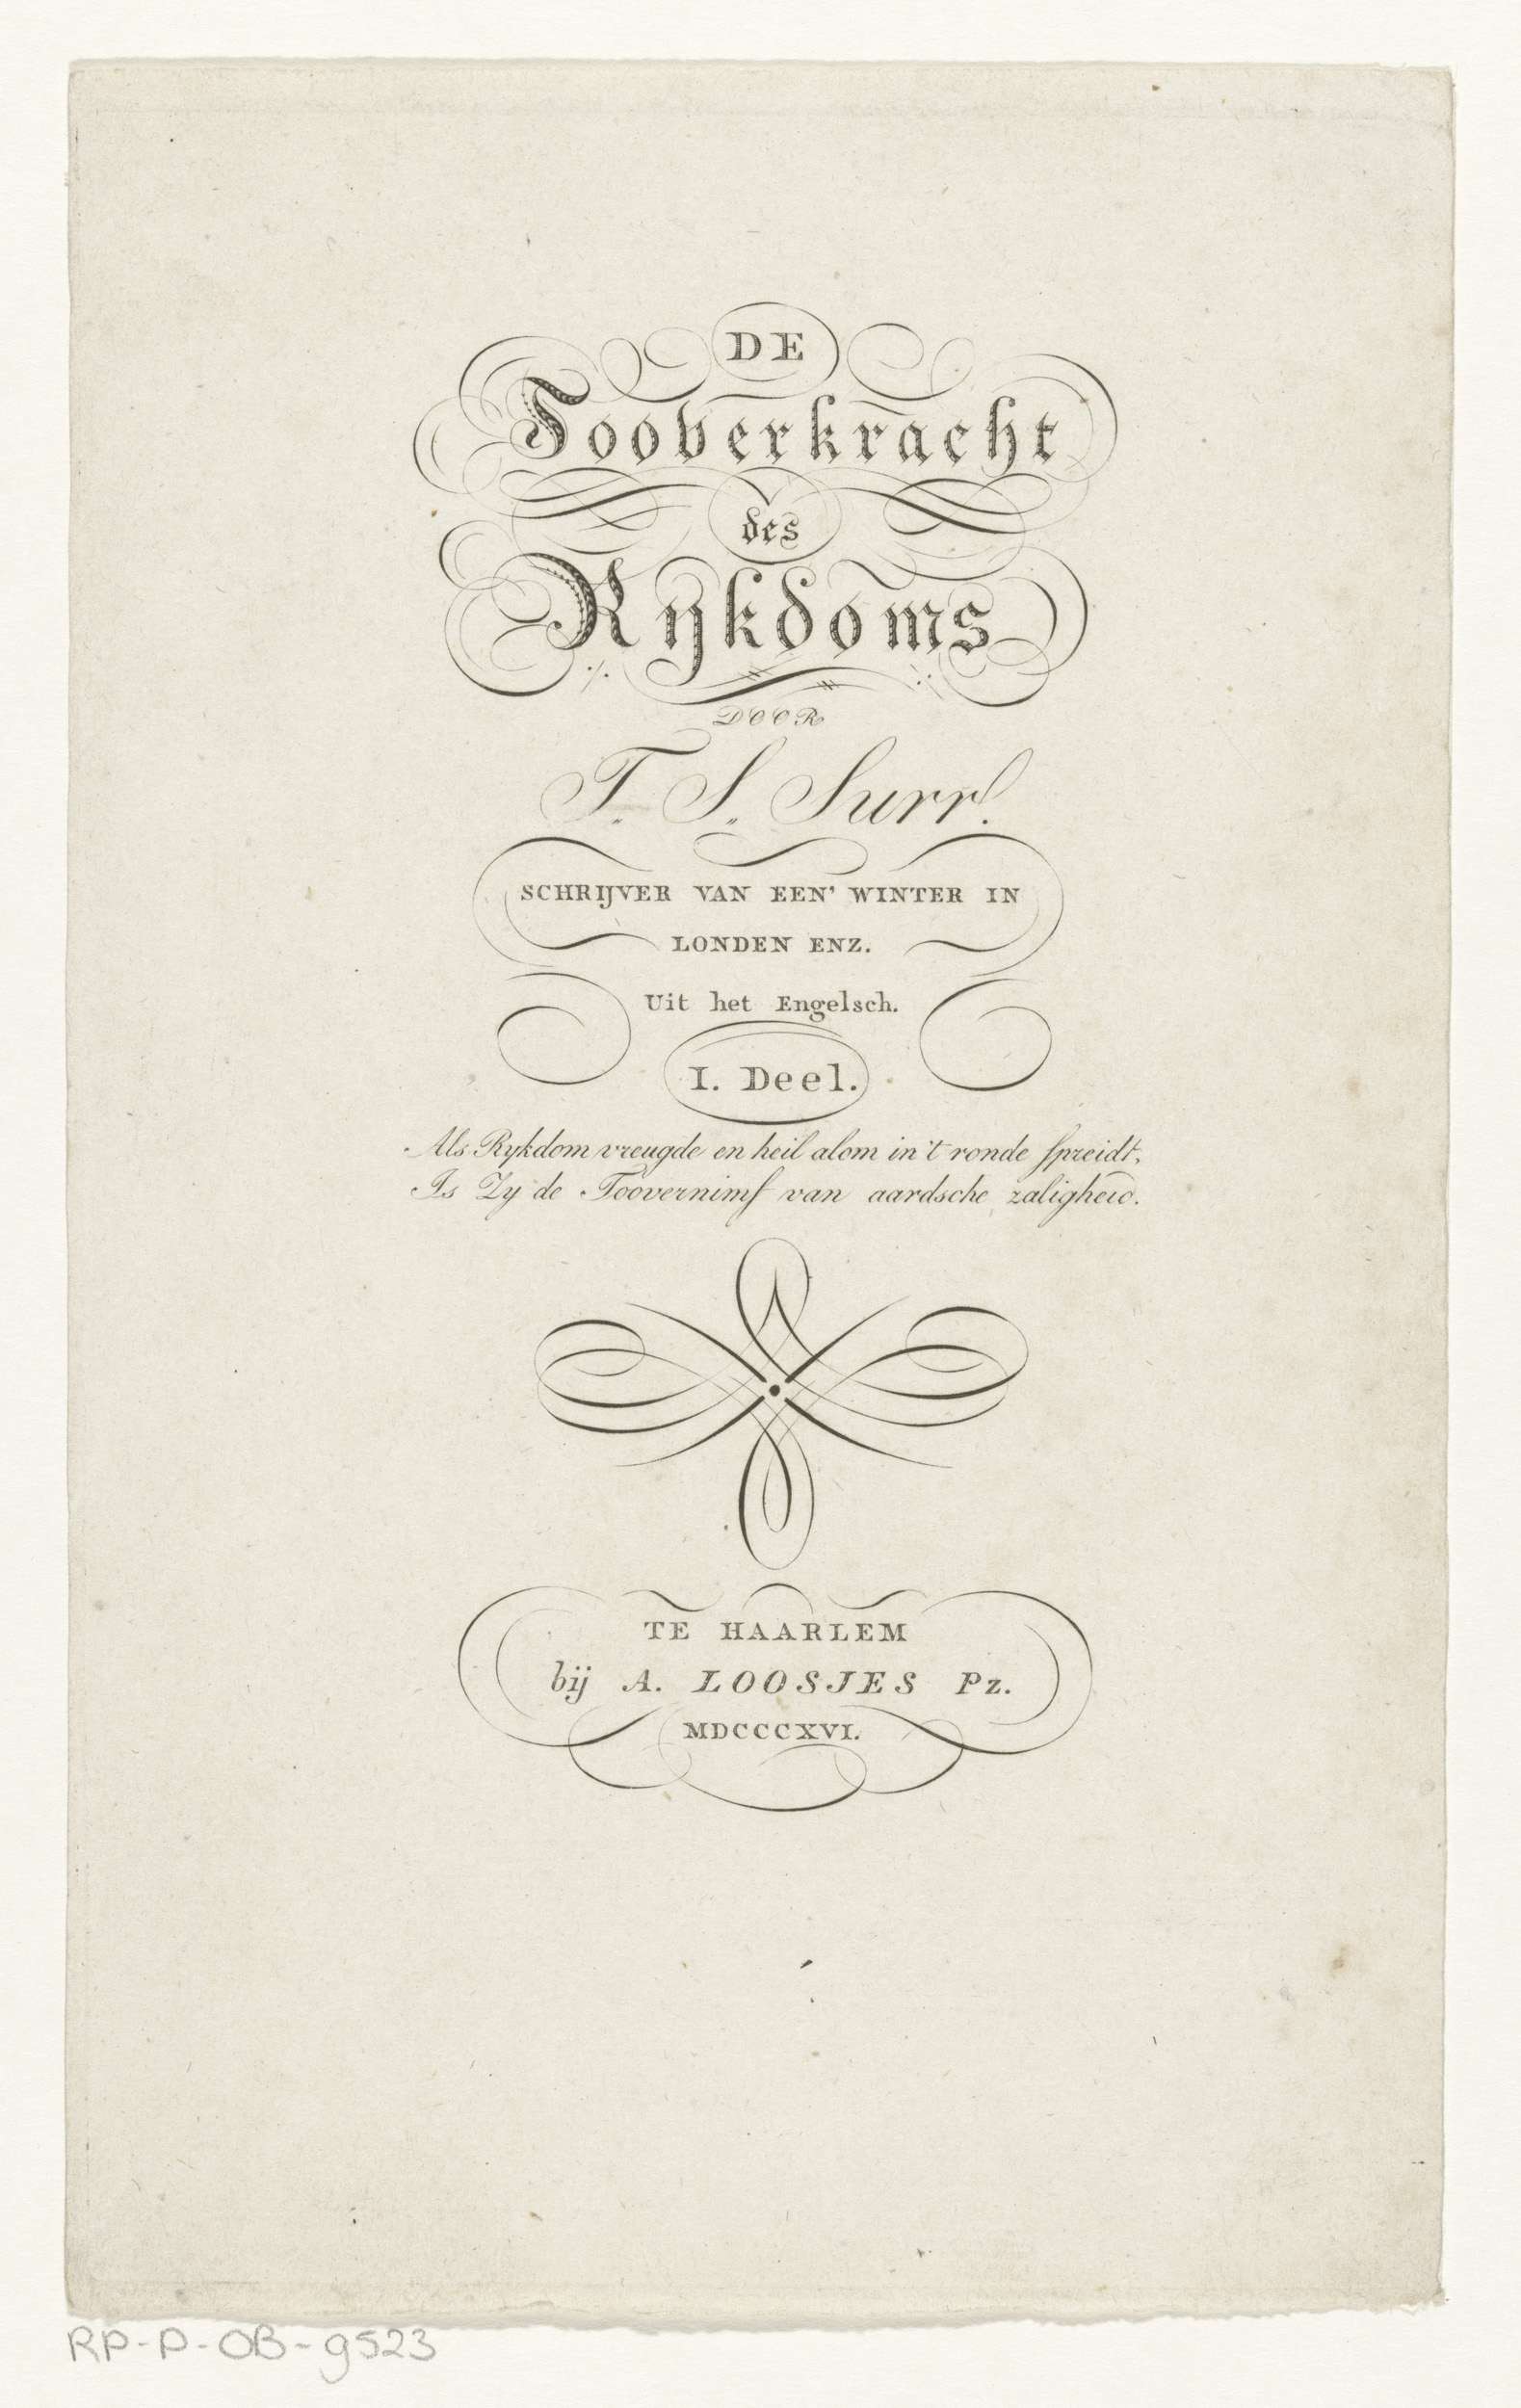 DE
Tooverkracht
des
Rykdoms
DOOR
T. S. Surr.
SCHRIJVER VAN EEN' WINTER IN
LONDEN ENZ.
Uit het Engelsch.
I. Deel.
Als Rykdom vreugde en heil alom in 't ronde spreidt,
Is Zy de Toovernimf van aardsche zaligheid.
TE HAARLEM
bij A. LOOSJES Pz.
MDCCCXVI.
RP-P-OB-9523